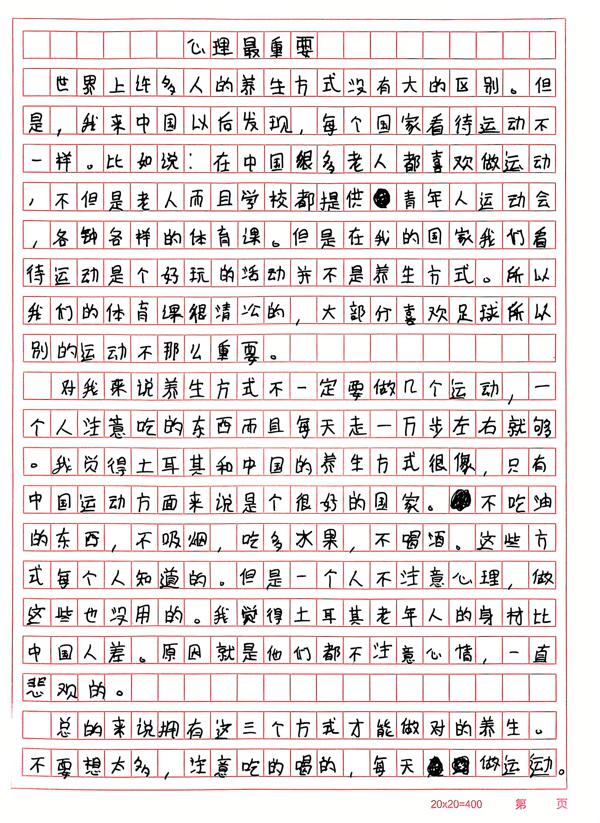 心理最重要
世界上许多人的养生方式没有大的区别。但
是，我来中国以后发现，每个国家看待运动不
一样。比如说：在中国很多老人都喜欢做运动
，不但是老人而且学校都提供青年人运动会
，各种各样的体育课。但是在我的国家我们看
待运动是个好玩的活动并不是养生方式。所以
我们的体育课很清松的，大部分喜欢足球所以
别的运动不那么重要。
对我来说养生方式不一定要做几个运动，一
个人注意吃的东西而且每天走一万步左右就够
。我觉得土耳其和中国的养生方式很像，只有
中国运动方面来说是个很好的国家。不吃油
的东西，不吸烟，吃多水果，不喝酒。这些方
式每个人知道的。但是一个人不注意心理，做
这些也没用的。我觉得土耳其老年人的身材比
中国人差。原因就是他们都不注意心情，一直
悲观的。
总的来说拥有这三个方式才能做对的养生。
不要想太多，注意吃的喝的，每天做运动。
20x20=400 第 页